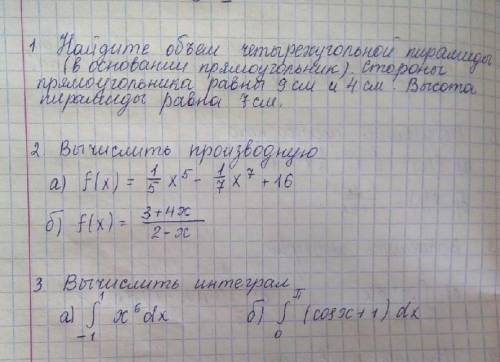 1 Найдите объем четырехугольной пирамиды
(в основании прямоугольник). Стороны
прямоугольника равны 9 см и 4 см. Высота
пирамиды равна 7 см.
2. Вычислить производную
а) f(x) = 1/5 x⁵ - 1/7 x⁷ + 16
б) f(x) = (3+4x)/(2-x)
3 Вычислить интеграл
а) ∫₋₁¹ x⁶dx б) ∫₀^π (cosx+1)dx